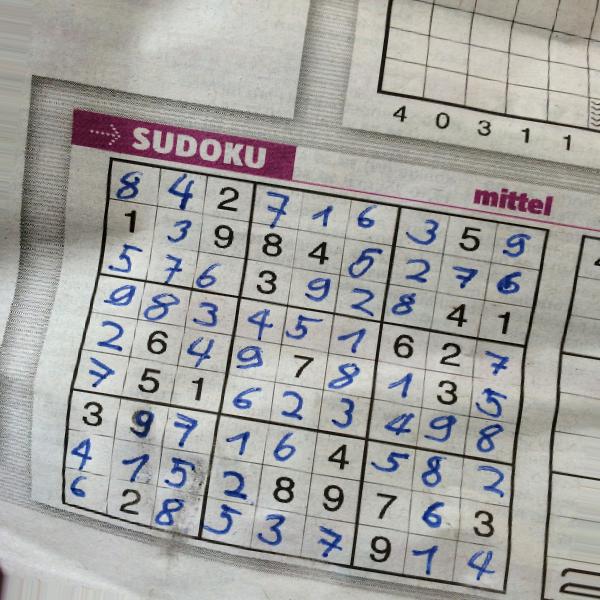 4 0 3 1 1
SUDOKU
mittel
8 4 2 7 1 6 3 5 9
1 3 9 8 4 5 2 7 6
5 7 6 3 9 2 8 4 1
9 8 3 4 5 1 6 2 7
2 6 4 9 7 8 1 3 5
7 5 1 6 2 3 4 9 8
3 9 7 1 6 4 5 8 2
4 1 5 2 8 9 7 6 3
6 2 8 5 3 7 9 1 4